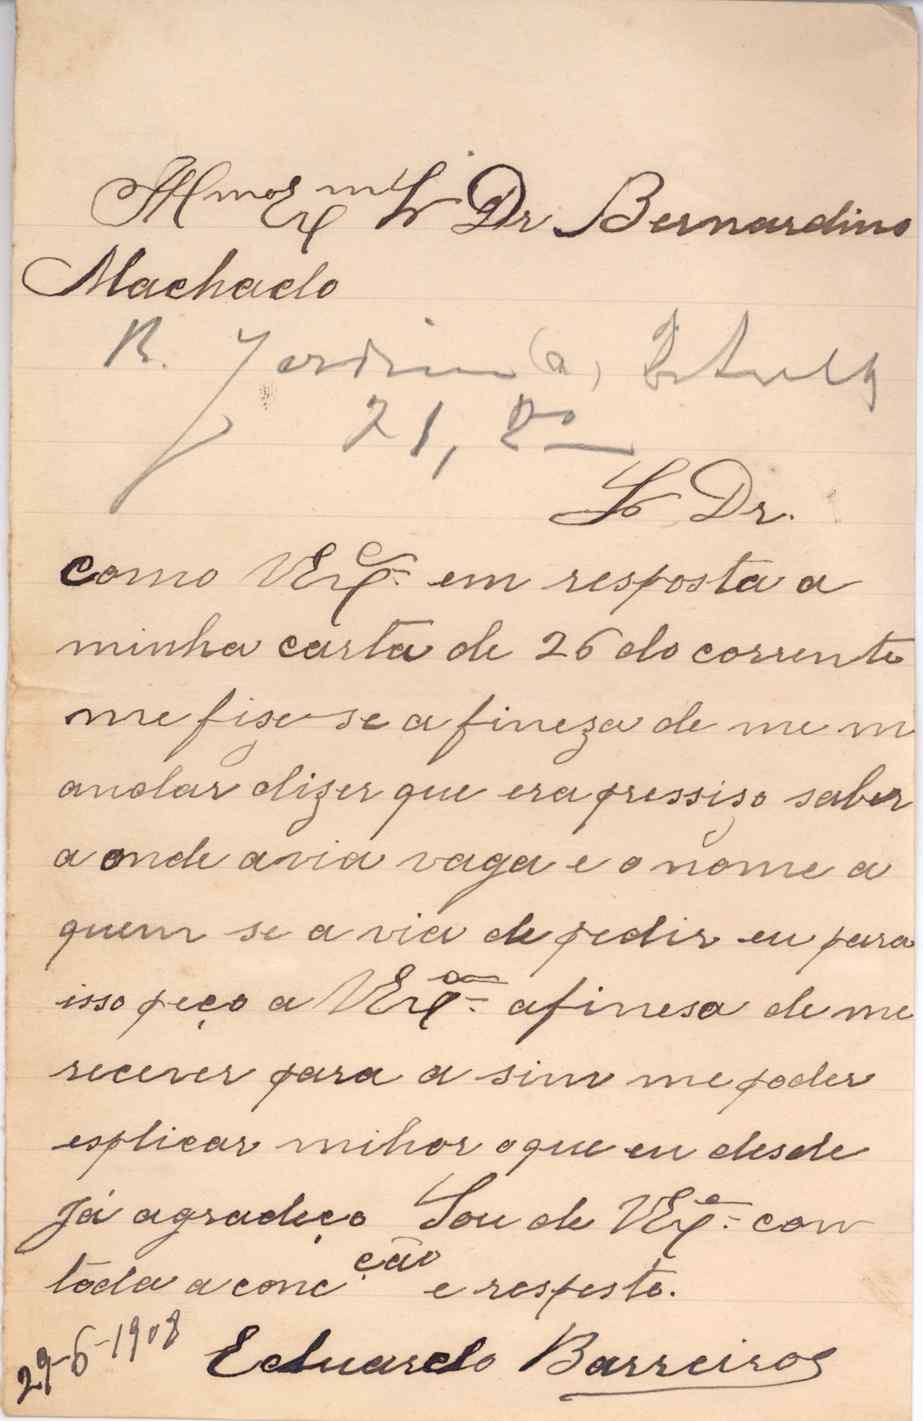 Illmo Exmo Sr Dr. Bernardino
Machado
R. Jardim (a, Estrella
21, 2o
Sr Dr.
como V Exce em resposta a
minha carta de 26 do corrente
me fise-se a fineza de me m
andar dizer que era pressizo saber
a onde avia vaga e o nome a
quem se a via de pedir eu para
isso peço a V Exa a finesa de me
recever para a sim me poder
esplicar milhor o que eu desde
Já agradeço Sou de V Exe com
tóda a conc ção e respesto.
29-6-1908 Eduardo Barreiros